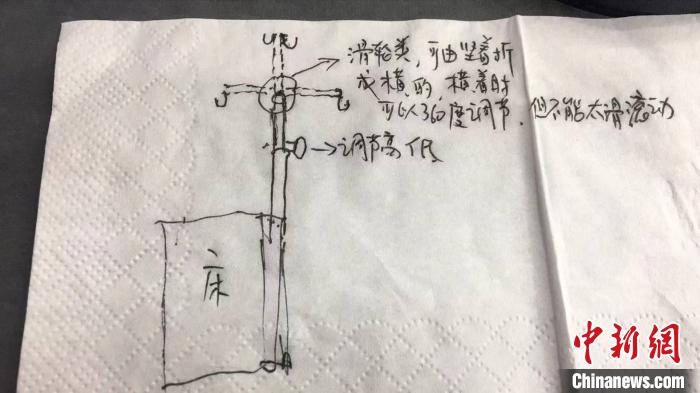 滑轮类，可由竖着折
成横的，横着时
可以360度调节，但不能太滑滚动
→调节高低
床
中新网
Chinanews.com